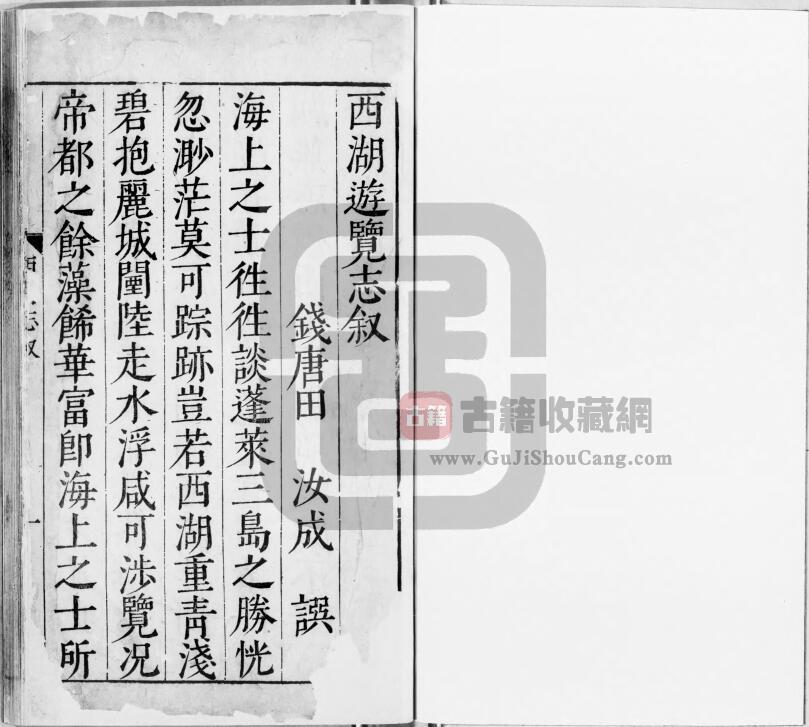 西湖遊覽志叙
錢唐田 汝成 譔
海上之士徃徃談蓬萊三島之勝恍
忽渺茫莫可踪跡豈若西湖重青淺
碧抱麗城闉陸走水浮咸可涉覽况
帝都之餘藻餙華富卽海上之士所
志叙
一
古籍
古籍收藏網
www.GuJiShouCang.com